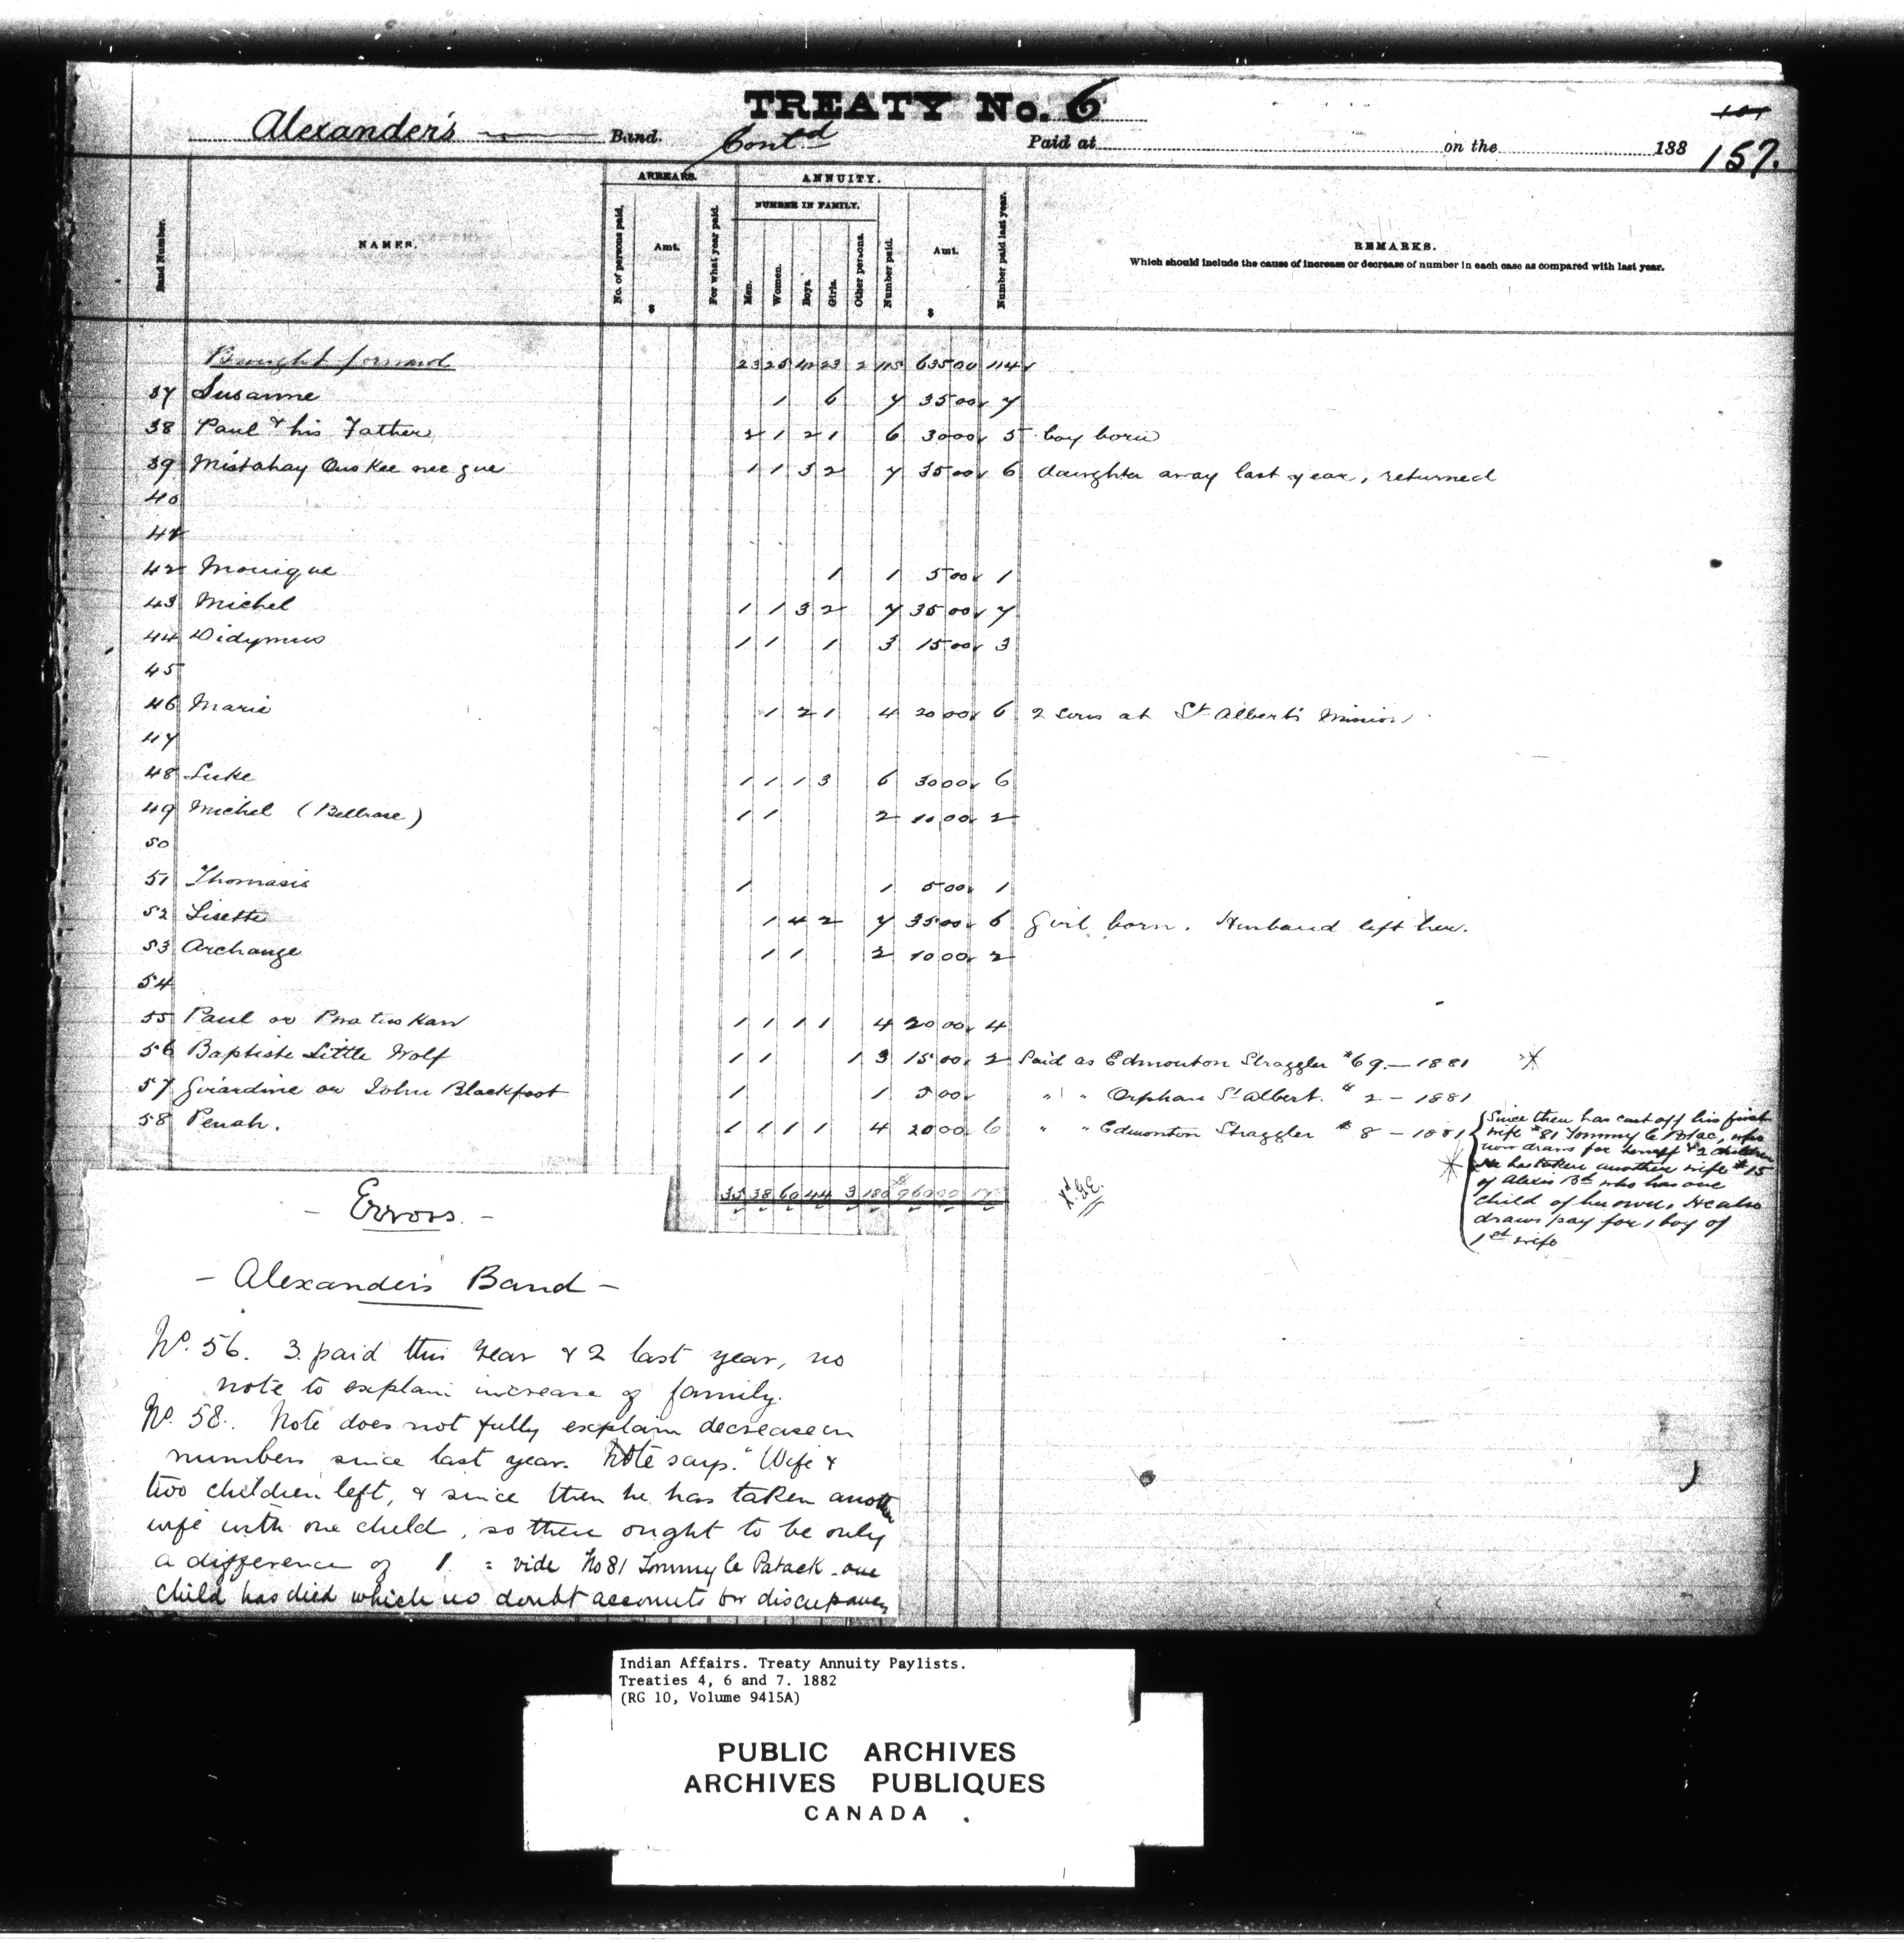 TREATY No. 6
101
Alexander's Band. Cont'd Paid at on the 188 157.
ARREARS. ANNUITY.
NUMBER IN FAMILY.
Band Number. NAMES. No. of persons paid. Amt. $ For what year paid. Men. Women. Boys. Girls. Other persons. Number paid. Amt. $ Number paid last year. REMARKS.
Which should include the cause of increase or decrease of number in each case as compared with last year.
Brought forward 23 25 42 23 2 115 635 00 114
37 Susanne 1 6 7 35 00 7
38 Paul & his Father 2 1 2 1 6 30 00 5 boy born
39 Mistahay Ous Kee nee gue 1 1 3 2 7 35 00 6 daughter away last year, returned
40
41
42 Monique 1 1 5 00 1
43 Michel 1 1 3 2 7 35 00 7
44 Didymus 1 1 1 3 15 00 3
45
46 Marie 1 2 1 4 20 00 6 2 sons at St Albert's Mission
47
48 Luke 1 1 1 3 6 30 00 6
49 Michel (Bellrose) 1 1 2 10 00 2
50
51 Thomasis 1 1 5 00 1
52 Lisette 1 4 2 7 35 00 6 Girl born. Husband left her.
53 Archange 1 1 2 10 00 2
54
55 Paul or 1 1 1 1 4 20 00 4
56 Baptiste Little Wolf 1 1 1 3 15 00 2 Paid as Edmonton Straggler #69 — 1881
57 Girardine or John Blackfoot 1 1 5 00 " " Orphan St Albert. " 2 — 1881
58 Penah. 1 1 1 1 4 20 00 6 " " Edmonton Straggler # 8 — 1881
Since then has cast off his first
wife #81 Tommy le Polac, who
now draws for herself & 2 children
He has taken another wife #15
of Alexis Bd who has one
child of her own. He also
draws pay for 1 boy of
1st wife
35 38 60 44 3 180 $ 960 00
- Errors. -
- Alexander's Band -
No. 56. 3 paid this year & 2 last year, no
note to explain increase of family.
No. 58. Note does not fully explain decrease in
numbers since last year. Note says "Wife &
two children left, & since then he has taken another
wife with one child, so there ought to be only
a difference of 1. : vide No 81 Tommy le Patack - one
child has died which no doubt accounts for discrepancy
Indian Affairs. Treaty Annuity Paylists.
Treaties 4, 6 and 7. 1882
(RG 10, Volume 9415A)
PUBLIC ARCHIVES
ARCHIVES PUBLIQUES
CANADA